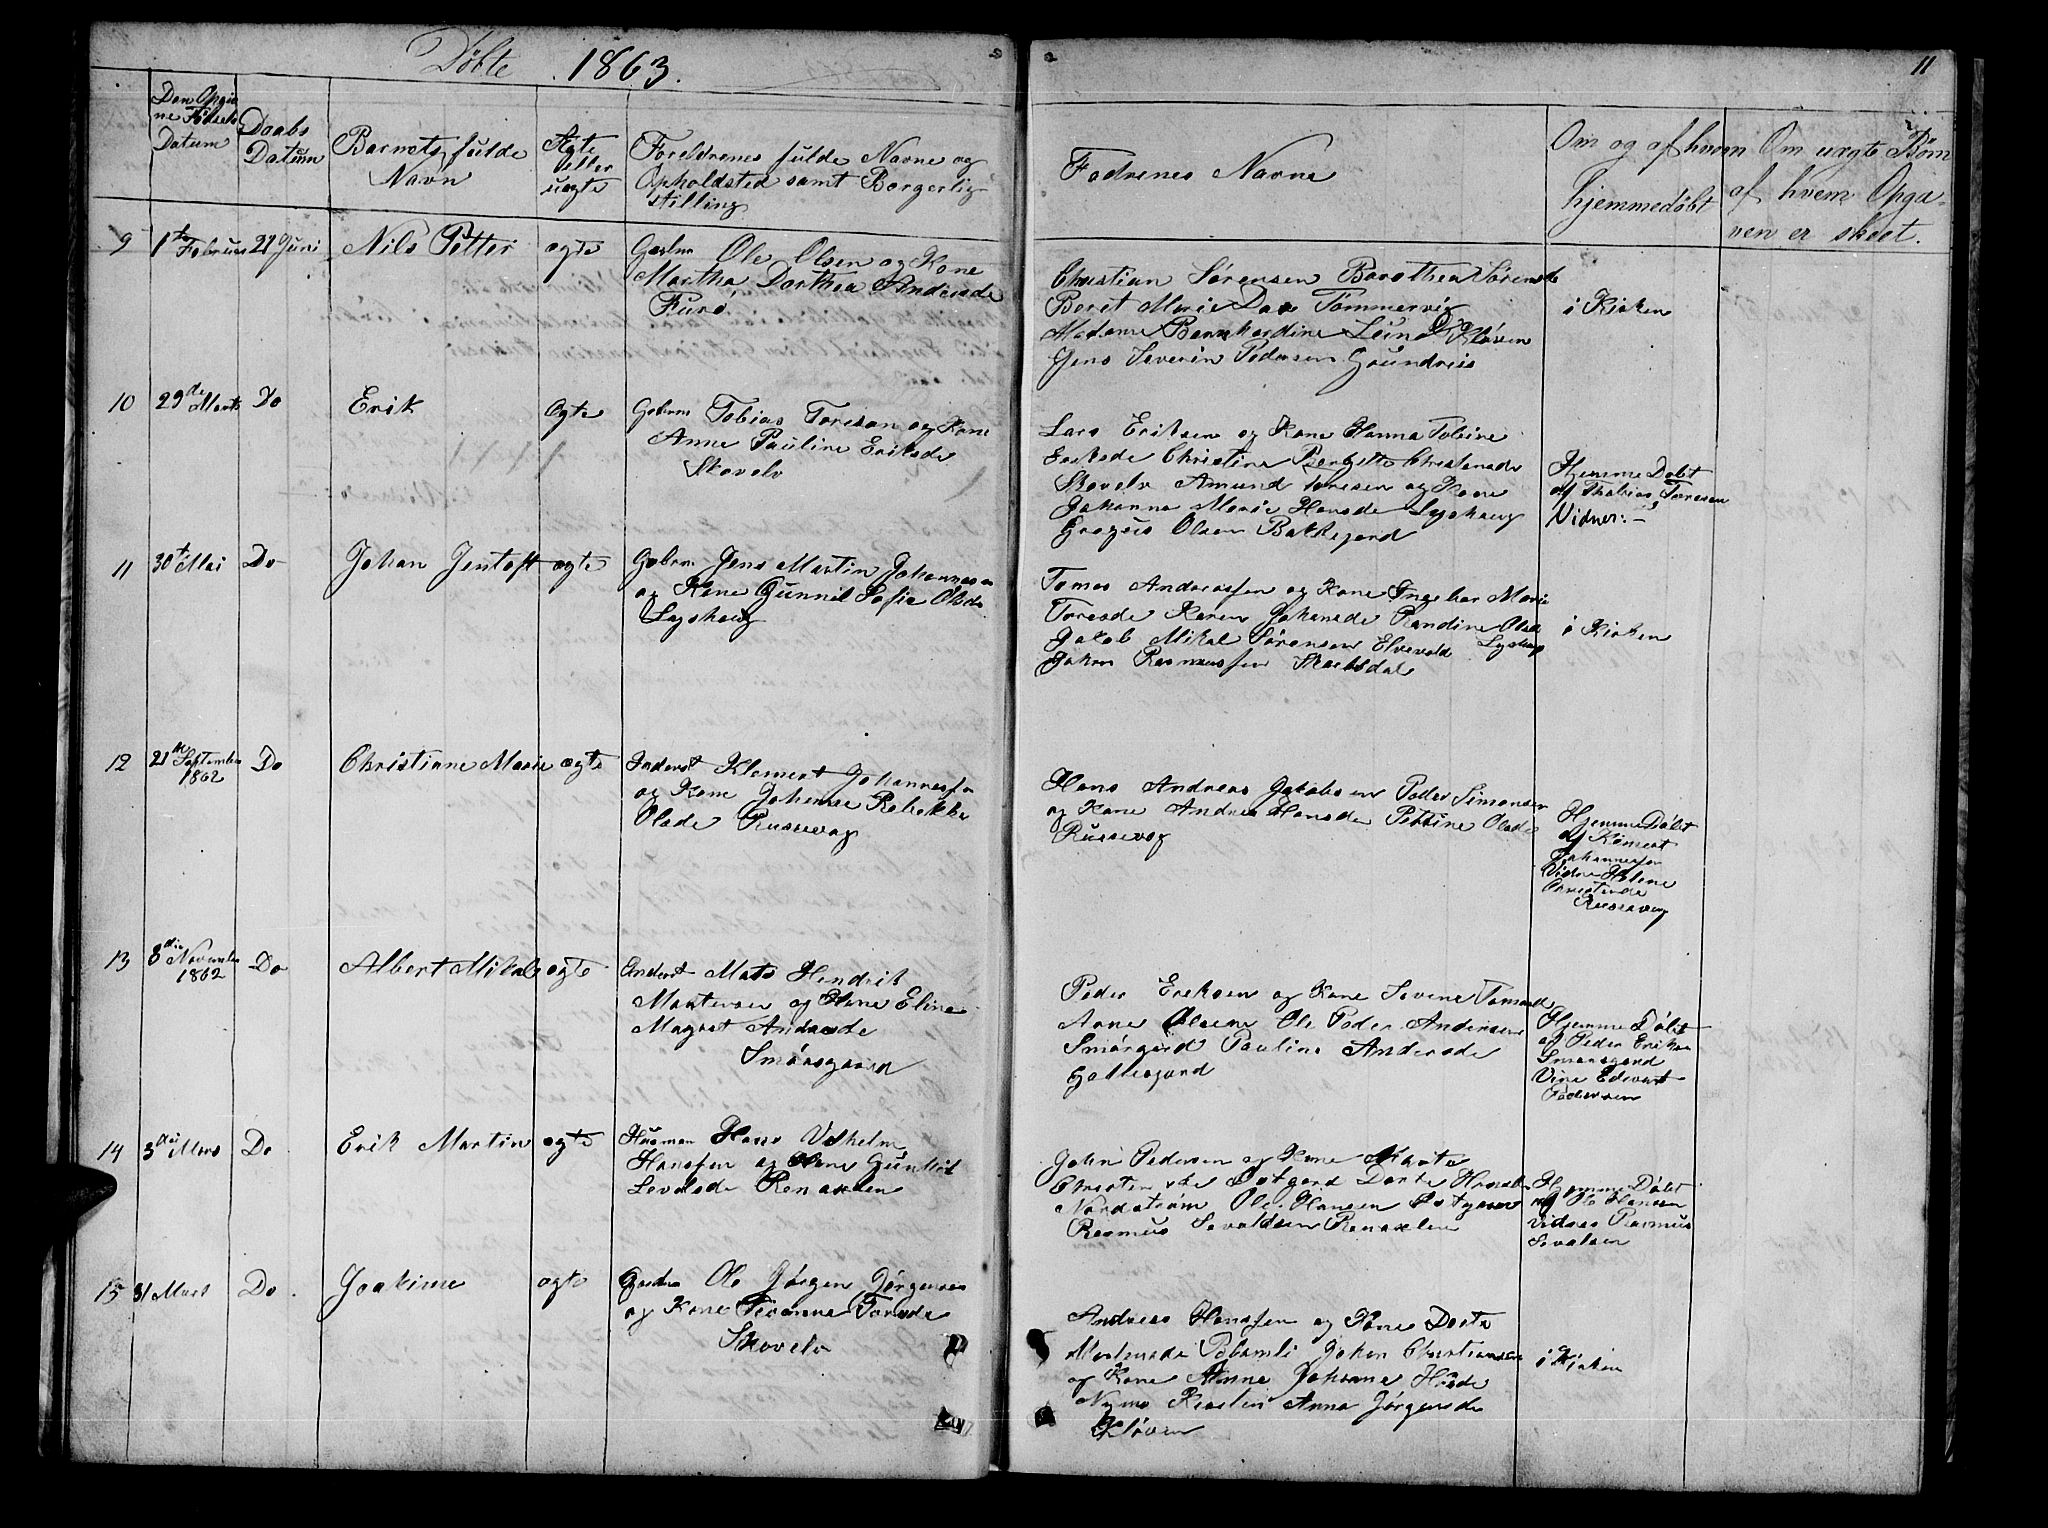 Döbte 1863.
11
Den Opgiv
ne Födsels
Datum
Daabs
Datum
Barnets fulde
Navn
Ægte
eller
uægte
Foreldrenes fulde Navne og
Opholdsted samt Borgerlig
stilling
Fadrenes Navne
Om og af hvem
hjemmedöbt
Om uægte Börn
af hvem Opga-
ven er skeet.
9
1te Februar
21 Juni
Nils Petter
ogte
Ole Olsen og Kone
Martha Dorthea Andersde
Furö
Christian Sörensen Barothea Sörensde
Beret Marie Daa Tömmervig
Madame Bernhardine Lund Klöven
Jens Severin Pedersen Grundreis
i Kirken
10
29de Marts
Do
Erik
Ogte
Gbrm Tobias Toresen og Kone
Anne Pauline Eriksde
Skovelv
Lars Eriksen og Kone Hanna Tobine
Eriksde Christine Bergitte Christensde
Skovelv Amund Toresen og Kone
Johanna Marie Hansde Lyshaug
Gregus Olsen Bakkejord
Hjemme Döbt
af Thobias Toresen
Vidner:-
11
30te Mai
Do
Johan Jentoft
ogte
Gbrm Jens Martin Johannesen
og Kone Gunnil Sofie Olsde
Lyshaug
Tomas Anderssen og Kone Ingebor Marie
Toresde Karen Johansde Randine Olsd
Jakob Mikal Sörensen Elvevold Lyshaug
Johan Rasmussen
i Kirken
12
21de September
1862
Do
Christiane Marie
ogte
Inderst Klemert Johannessen
og Kone Johanna Rebekka
Olsde Russevog
Hans Andreas Jakobsen Peder Simonsen
og Kone Andrea Hansde Pettine Olsde
Russevog
Hjemme Döbt
af Klemert
Johannessen
Vidne Helene
Christensde
Russevog
13
8de November
1862
Do
Albert Mikal
ogte
Inderst Mats Hendrik
Martensen og Kone Elina
Magret Andersde
Smörsgaard
Peder Eriksen og Kone Sevine Tomasde
Anne Olsen Ole Peder Andersen
Smörgard Pauline Andersde
Galtesgard
Hjemme Döbt
af Peder Eriksen
Smörsgard
Vine Edevart
Pedersen
14
3die Mars
Do
Erik Martin
ogte
Husman Hans Vilhelm
Hanssen og Kone Gunhil
Levolsde Renaxlen
John Pedersen og Kone Marte
Christensde Östgard Dorte Hansde
Nordström Ole Hansen Östgaard
Rasmus Sevaldsen Renaxlen
Hjemme Döbt
af Ole Hansen
Vidnes Rasmus
Sevalsen
15
31 Mart
Do
Joakime
ogte
Ole Jörgen Jörgensen
og Kone Toresde
Skovelv
Andreas Hanssen og Kone Dorte
Martensde Johan Christiansen
og Kone Anne Johanna Hansde
Nymo Kirsten Anna Jörgensde
Klöven
i Kirken